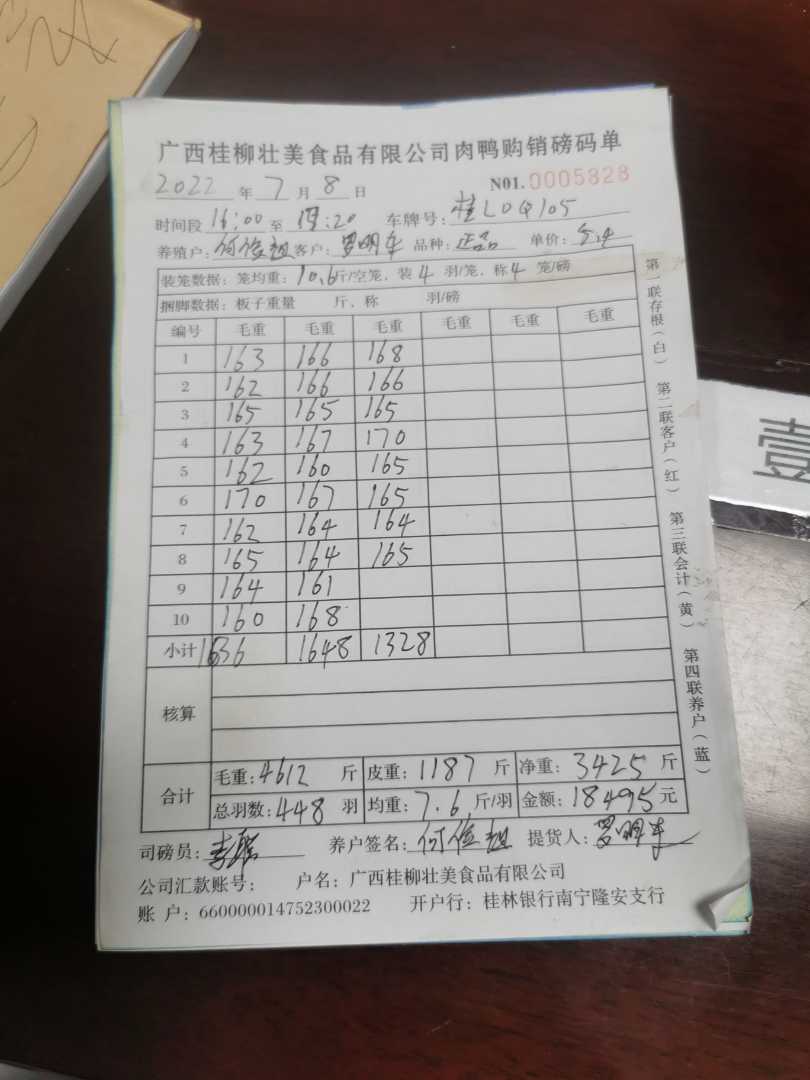 广西桂柳壮美食品有限公司肉鸭购销磅码单
2022 年 7 月 8 日 N01.0005828
时间段 16:00 至 :20 车牌号: 桂L0Q105
养殖户: 何俊祖 客户: 罗明车 品种: 正品 单价: 5.4
装笼数据: 笼均重: 10.6 斤/空笼, 装 4 羽/笼, 称 4 笼/磅
捆脚数据: 板子重量 斤、称 羽/磅
编号 毛重 毛重 毛重 毛重 毛重 毛重
1 163 166 168
2 162 166 166
3 165 165 165
4 163 167 170
5 162 160 165
6 170 167 165
7 162 164 164
8 165 164 165
9 164 161
10 160 168
小计 1636 1648 1328
核算
合计 毛重: 4612 斤 皮重: 1187 斤 净重: 3425 斤
总羽数: 448 羽 均重: 7.6 斤/羽 金额: 18495 元
司磅员: 养户签名: 何俊祖 提货人: 罗明车
公司汇款账号: 户名: 广西桂柳壮美食品有限公司
账 户: 660000014752300022 开户行: 桂林银行南宁隆安支行
第一联存根(白) 第二联客户(红) 第三联会计(黄) 第四联养户(蓝)
壹